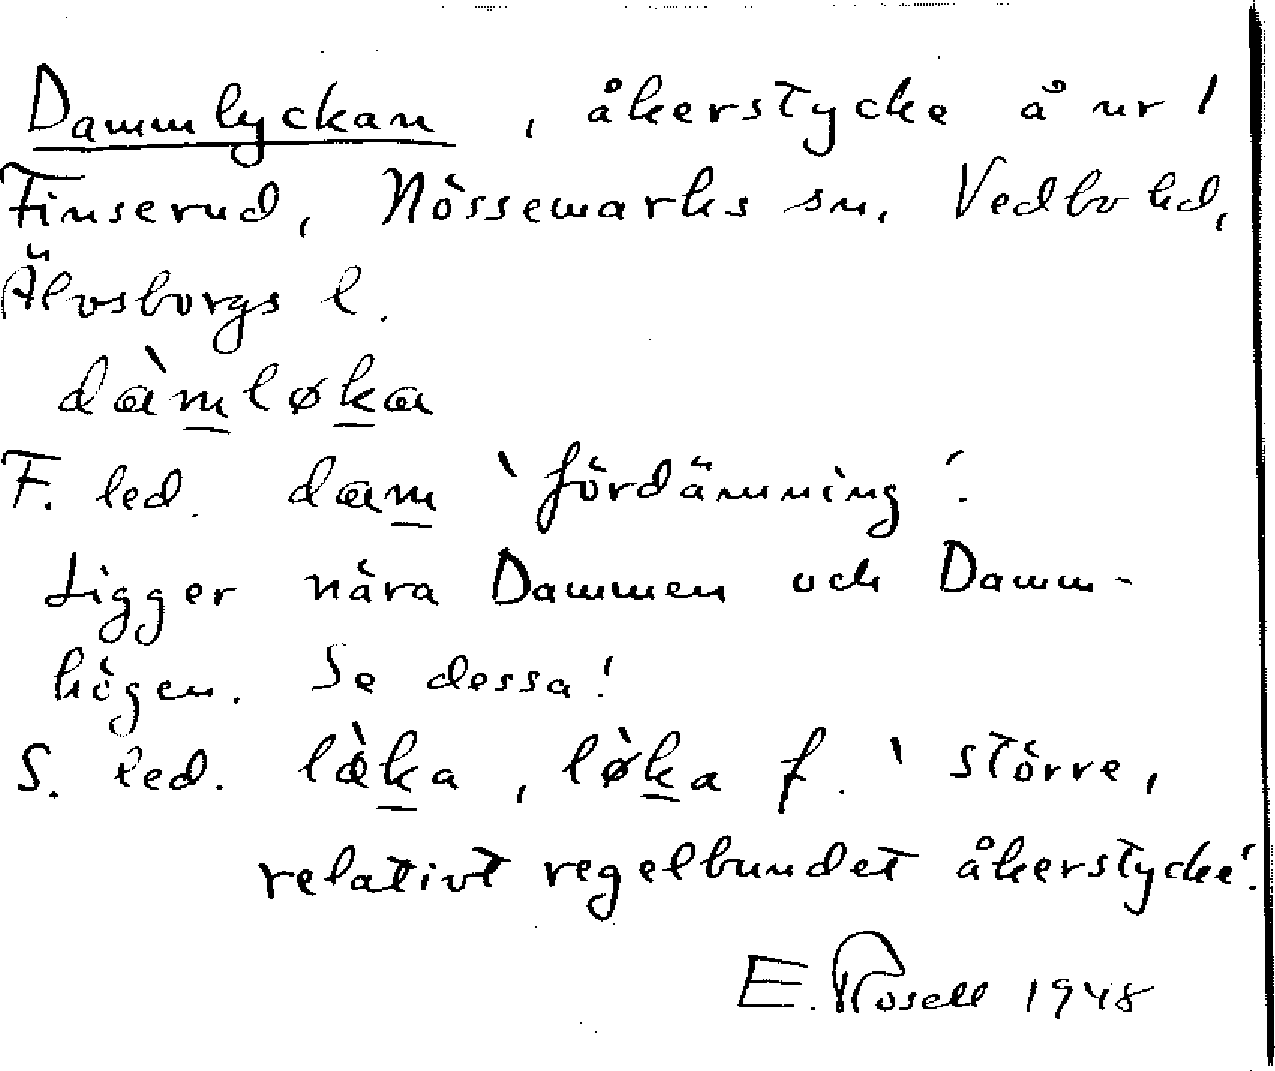 Dammlyckan, åkerstycke å nr 1
Finserud, Nössemarks sn, Vedbo hd,
Älvsborgs l.
dàmløka
F. led. dam 'fördämning'.
Ligger nära Dammen och Damm-
högen. Se dessa!
S. led. læ̀ka, lø̀ka f. 'större,
relativt regelbundet åkerstycke'.
E. Rosell 1948